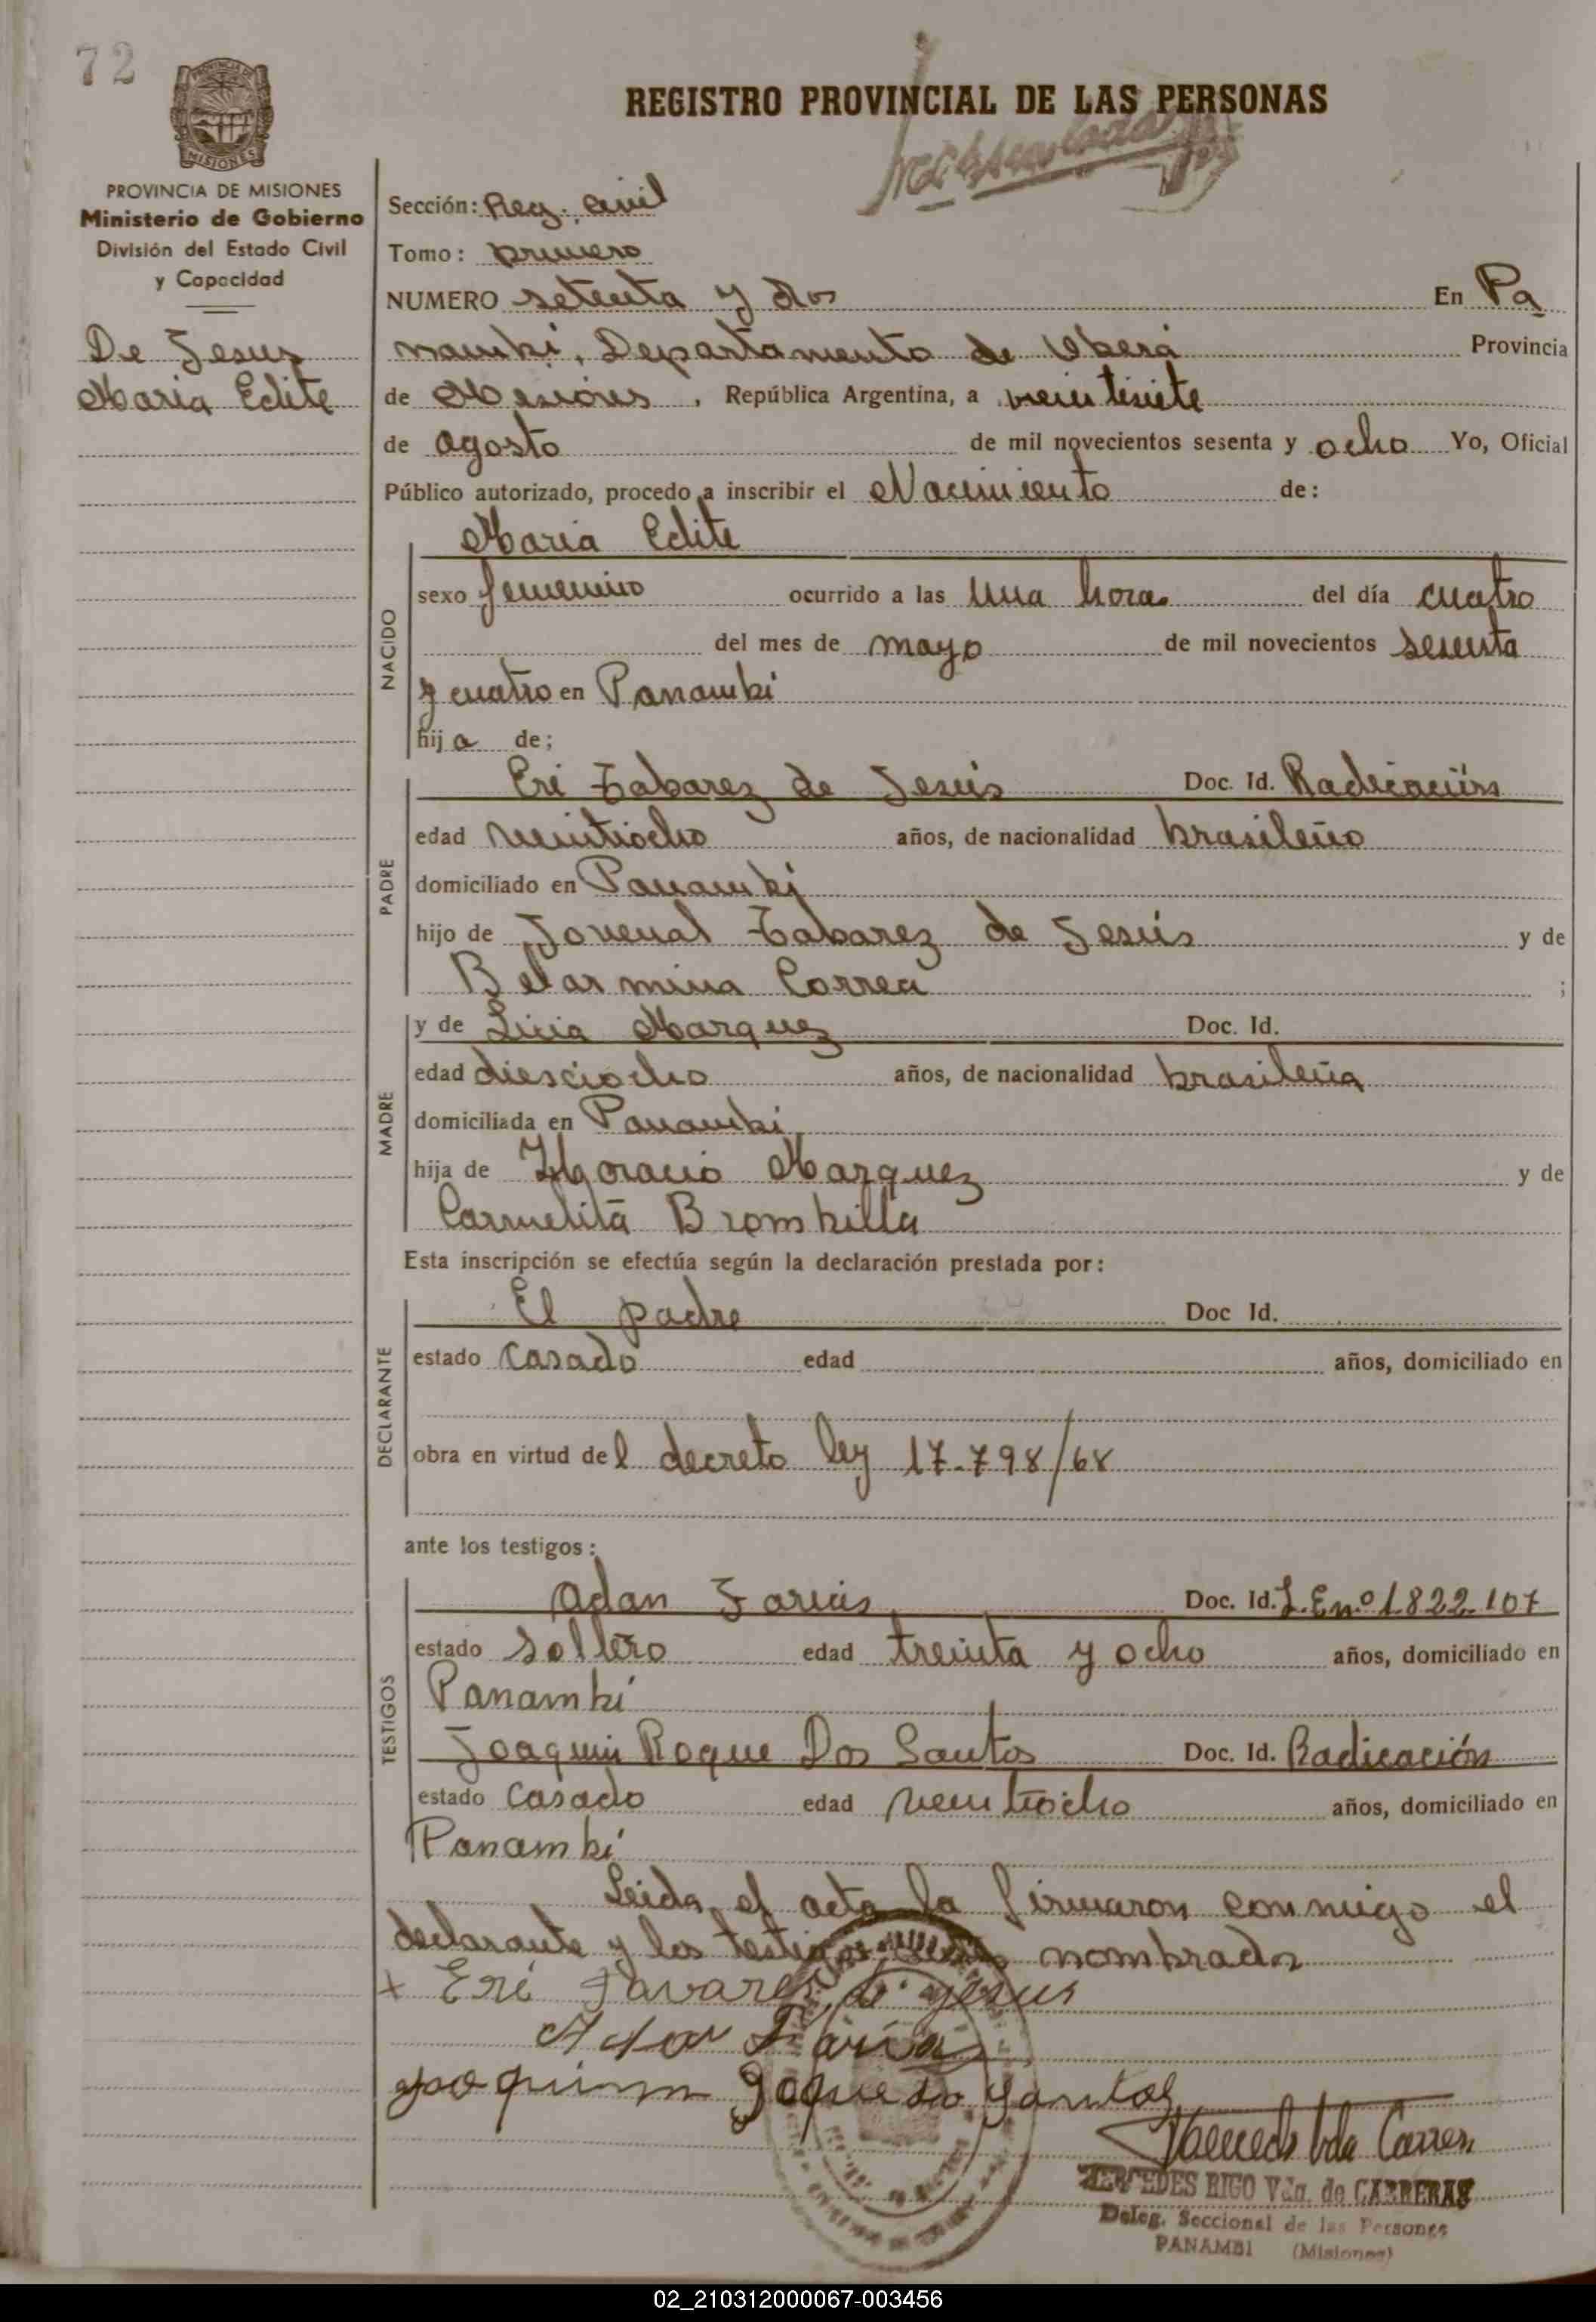 72
PROVINCIA DE
MISIONES
REGISTRO PROVINCIAL DE LAS PERSONAS
PROVINCIA DE MISIONES
Ministerio de Gobierno
División del Estado Civil
y Capacidad
De Jesus
Maria Edite
Sección: Reg. Civil
Tomo: primero
NUMERO setenta y dos En Pa
nambi, Departamento de Oberá Provincia
de Misiones, República Argentina, a veintisiete
de agosto de mil novecientos sesenta y ocho Yo, Oficial
Público autorizado, procedo a inscribir el Nacimiento de:
NACIDO
Maria Edite
sexo femenino ocurrido a las una hora del día cuatro
del mes de mayo de mil novecientos sesenta
y cuatro en Panambi
hija de;
PADRE
Eri Tabarez de Jesús Doc. Id. Radicación
edad veintiocho años, de nacionalidad brasileño
domiciliado en Panambi
hijo de Jovenal Tabarez de Jesús y de
Belarmina Correa ;
MADRE
y de Licia Marquez Doc. Id.
edad diesciocho años, de nacionalidad brasileña
domiciliada en Panambi
hija de Horacio Marquez y de
Carmelita Brombilla
Esta inscripción se efectúa según la declaración prestada por:
DECLARANTE
El padre Doc Id.
estado casado edad años, domiciliado en
obra en virtud del decreto ley 17.798/68
ante los testigos:
TESTIGOS
Adan Farias Doc. Id. L.E nº 1.822.107
estado soltero edad treinta y ocho años, domiciliado en
Panambí
Joaquin Roque Dos Santos Doc. Id. Radicación
estado casado edad veintiocho años, domiciliado en
Panambí
Leida el acta la firmaron conmigo el
declarante y los testigos nombrados
x Eri Tavares de Jesus
Adan Farias
Joaquim Roque do Santos
MERCEDES RIGO Vda. de CARRERAS
Deleg. Seccional de las Personas
PANAMBI (Misiones)
02_210312000067-003456